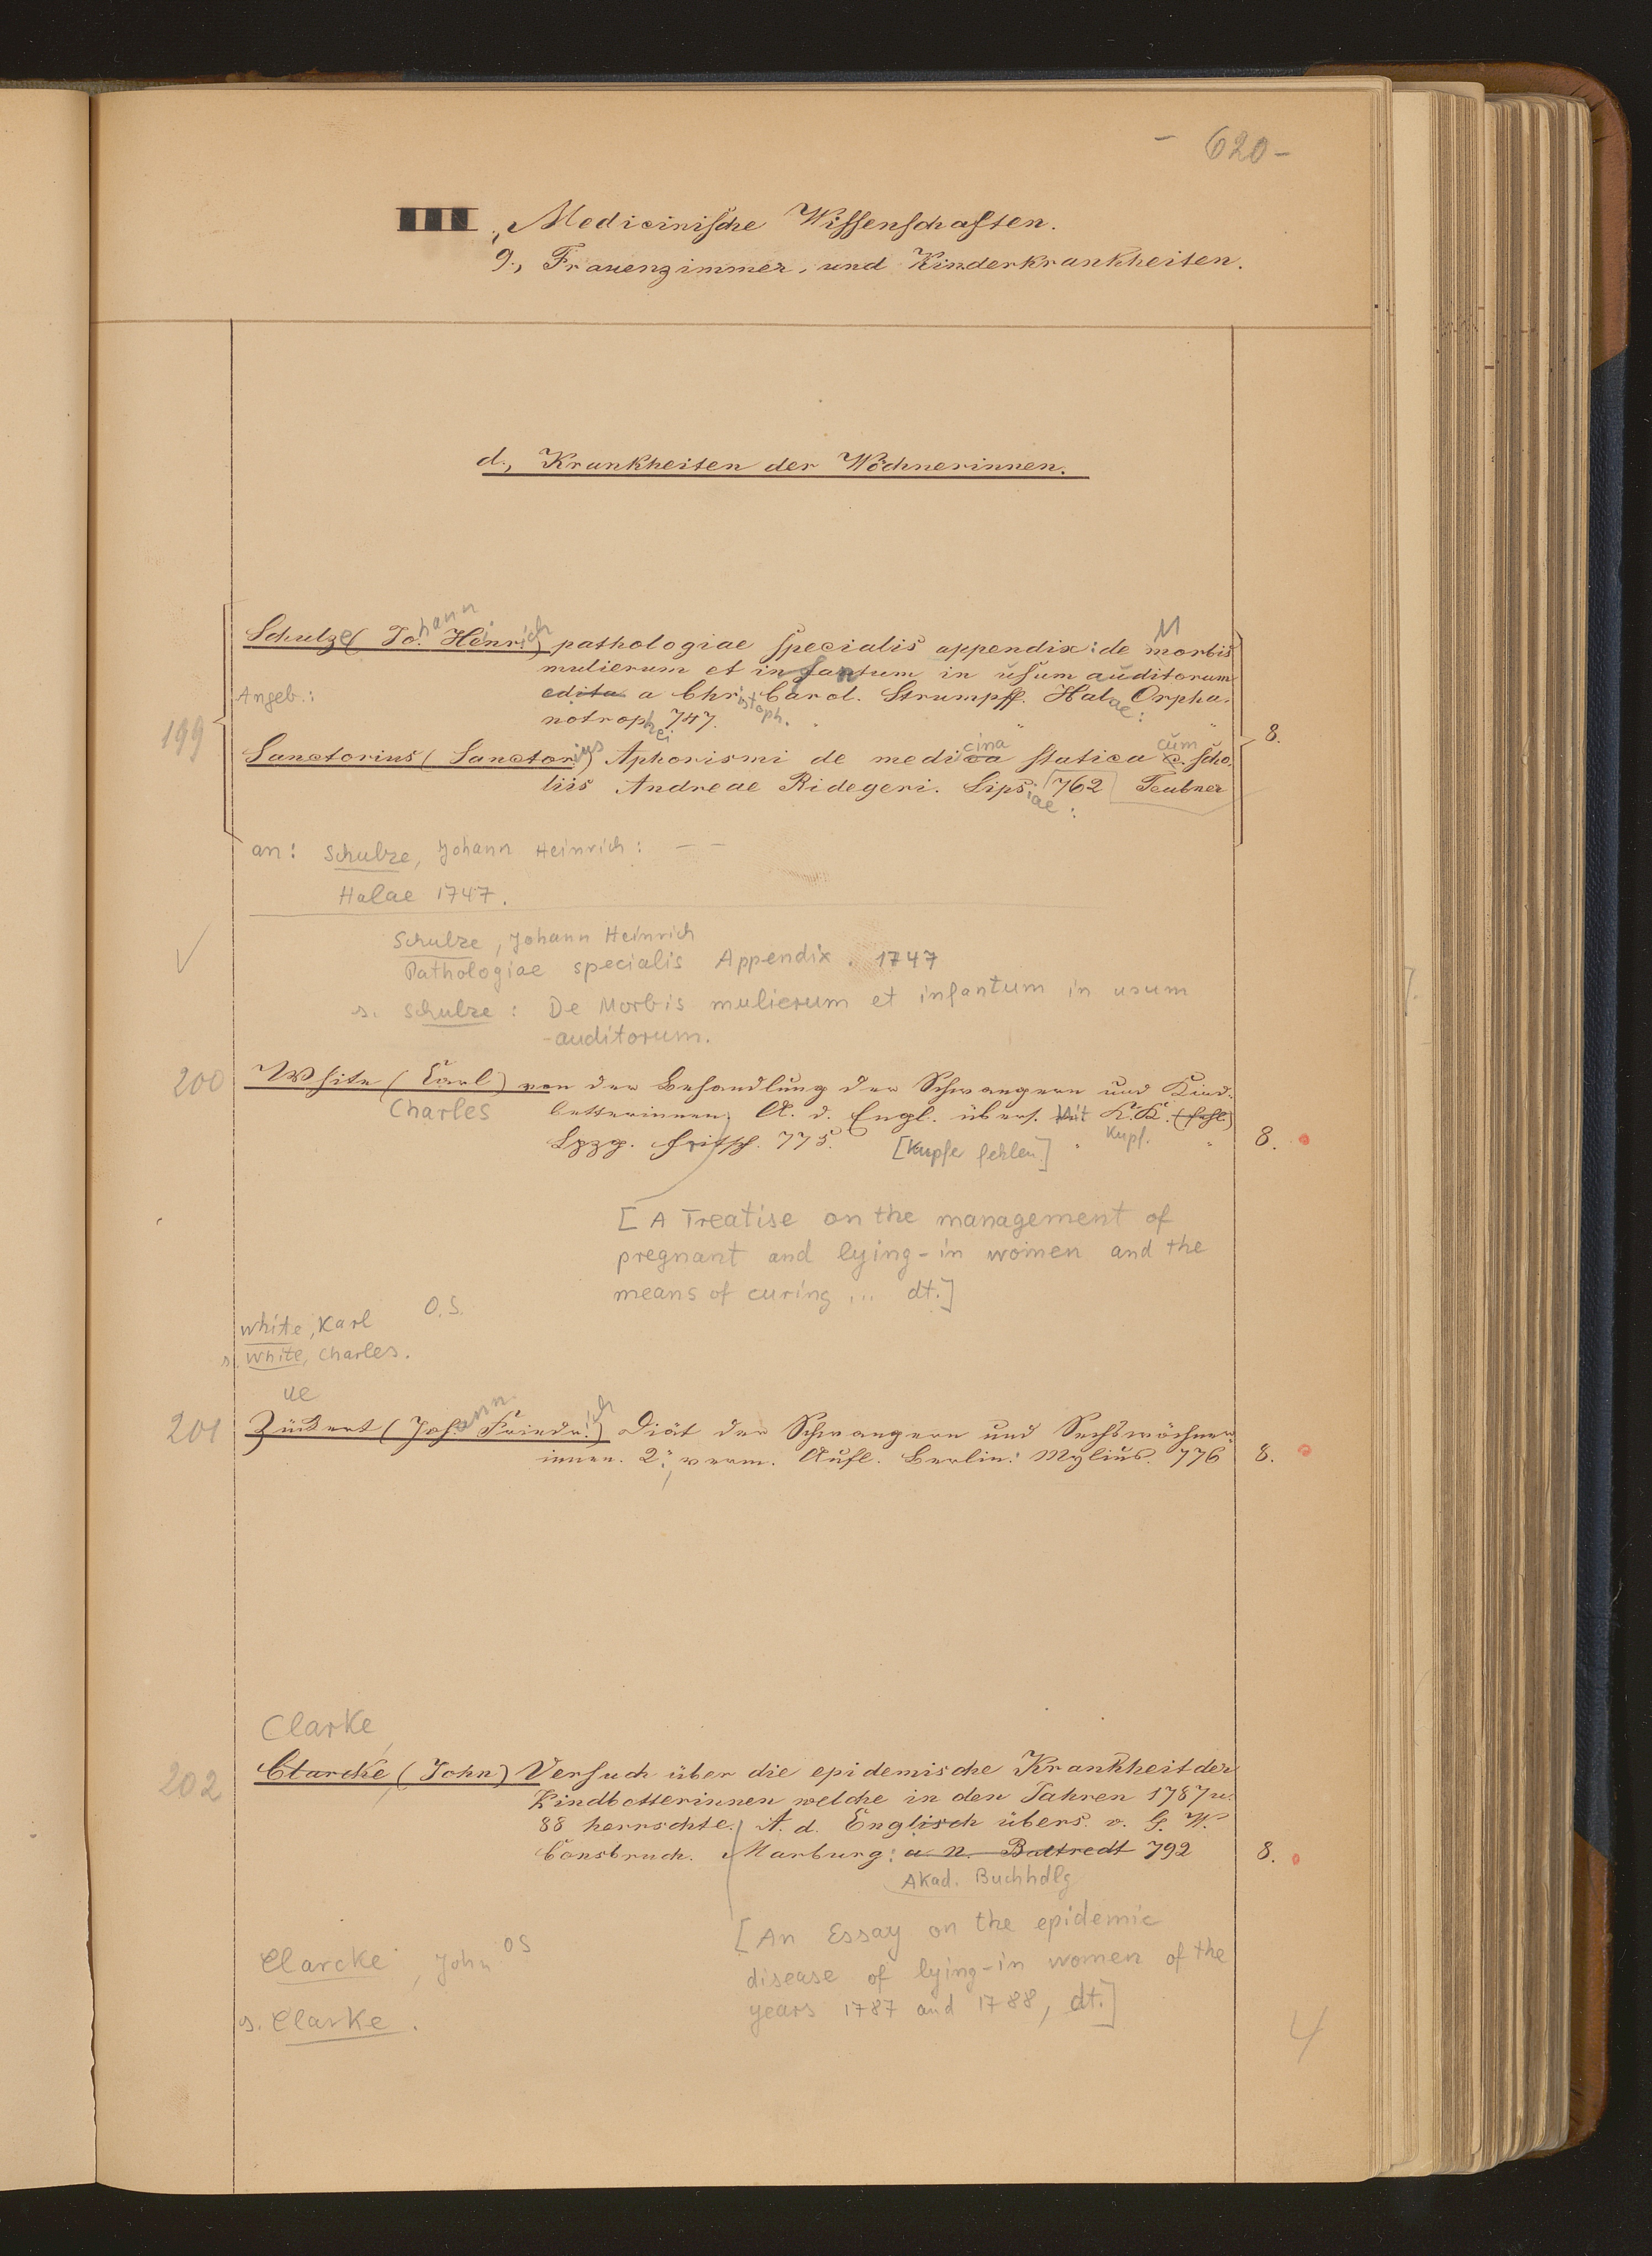 - 620 -
Medicinische Wissenschaften.
9., Frauenzimmer, und Kinderkrankheiten.
d., Krankheiten der Wöchnerinnen.
Schulze (Johann Heinrich) pathologiae specialis appendix: de Morbis
mulierum et infantum in usum auditorum
Angeb.: edita a Christoph. Carol. Strumpff. Halae: Orpha-
199 notrophei 747. " " " 8.
Sanctorius (Sanctorius) Aphorismi de medicina statica cum scho-
liis Andreae Ridegeri. Lipsiae: 762 Teubner
an: Schulze, Johann Heinrich: - -
Halae 1747.
Schulze, Johann Heinrich
Pathologiae specialis Appendix. 1747
s. Schulze: De Morbis mulierum et infantum in usum
-auditorum.
200 White (Carl) von der Behandlung der Schwangern und Kind-
Charles betterinnen; A. d. Engl. übers. Mit K.K. (fehl.)
Lpzg. Fritsch. 775. [Kupfe fehlen] " Kupf. " 8.
[A Treatise on the management of
pregnant and lying-in women and the
means of curing ... dt.]
White, Karl O.S.
s. White, Charles.
ue
201 Zückert (Johann Friedrich) Diät der Schwangern und Sechswöchner-
innen. 2; verm. Aufl. Berlin: Mylius. 776 8.
Clarke,
202 Clarcke (John) Versuch über die epidemische Krankheit der
Kindbetterinnen welche in den Jahren 1787 u.
88 herrschte. A. d. Englisch übers. v. G. W.
Consbruch. Marburg: a. n. 792 8.
Akad. Buchhdlg
[An Essay on the epidemic
Clarcke, John OS
disease of lying-in women of the
years 1787 and 1788, dt.]
s. Clarke.
4